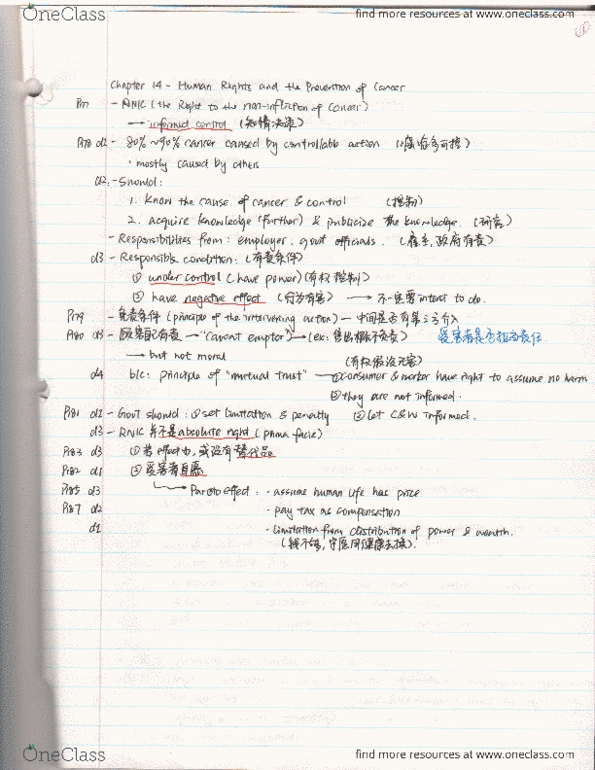 OneClass find more resources at www.oneclass.com
Chapter 14 - Human Rights and the Prevention of Cancer
- RNIC (the Right to the non-infliction of Cancer)
→ informed control (知情决策)
P178 d2 - 80%~90% cancer caused by controllable action
• mostly caused by others
d2 - Should:
1. Know the cause of cancer & control (控制)
2. acquire knowledge (further) & publicize the knowledge. (研究)
- Responsibilities from: employer, govt officials. (雇主,政府有责)
d3 - Responsible condition: (有责条件)
① under control (have power) (有权控制)
② have negative effect (行为有害) → 不一定要 intent to do.
P179 - 免责条件 (principle of the intervening action) - 中间是否有第三方介入
P180 d3 - 受害者自己有责 → "caveat emptor" → (ex: 售出概不负责) 受害者是否担当责任
→ but not moral (有权假设无害)
d4 b/c: principle of "mutual trust" → ① consumer & worker have right to assume no harm
② they are not informed.
P181 d1 - Govt should: ① set limitation & penalty ② let C&W informed.
d3 - RNIC 并不是 absolute right (prima facie)
P183 d3 ① 若 effect 小, 或没有替代品
P182 d1 ② 受害者自愿
P185 d3 → Pareto effect: • assume human life has price
P187 d2 • pay tax as compensation
d1 • limitation from distribution of power & wealth.
OneClass find more resources at www.oneclass.com